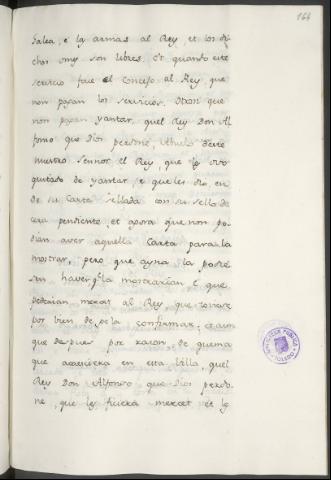 164
Galea, e las armas al Rey, et los di-
chos omes son libres. Et quando este
servicio face el concejo al Rey, que
non pagan los servicios. Otrosi que
non pagan yantar, quel Rey Don Al-
fonso que Dios perdone, Abuelo deste
nuestro sennor el Rey, que los ovo
quitado de yantar, e que les dio en-
de su carta sellada con su sello de
cera pendiente, et agora que non po-
dian aver aquella Carta para la
mostrar, pero que ayna la podie-
sen haver q.e la mostrarian e que
pedeian merced al Rey, que toviese
por bien de gela confirmar, et aun
que despues por razon de quema
que acaesciera en esta Villa, quel
Rey Don Alfonso, que Dios perdo-
ne, que les ficiera mercet et les
BIBLIOTECA PUBLICA
TOLEDO